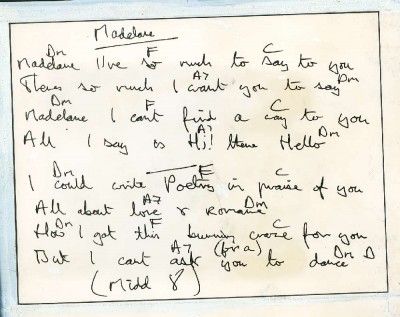 Madelane
Dm F C
Madelane I've so much to say to you
A7 Dm
Theres so much I want you to say
Dm F C
Madelane I cant find a way to you
A7 Dm
All I say is Hi! there Hello
Dm F C
I could write Poetry in praise of you
A7 Dm
All about love & Romance
Dm F C
How I got this burning craze for you
A7 (for a) Dm D
But I cant ask you to dance
(Midd 8)